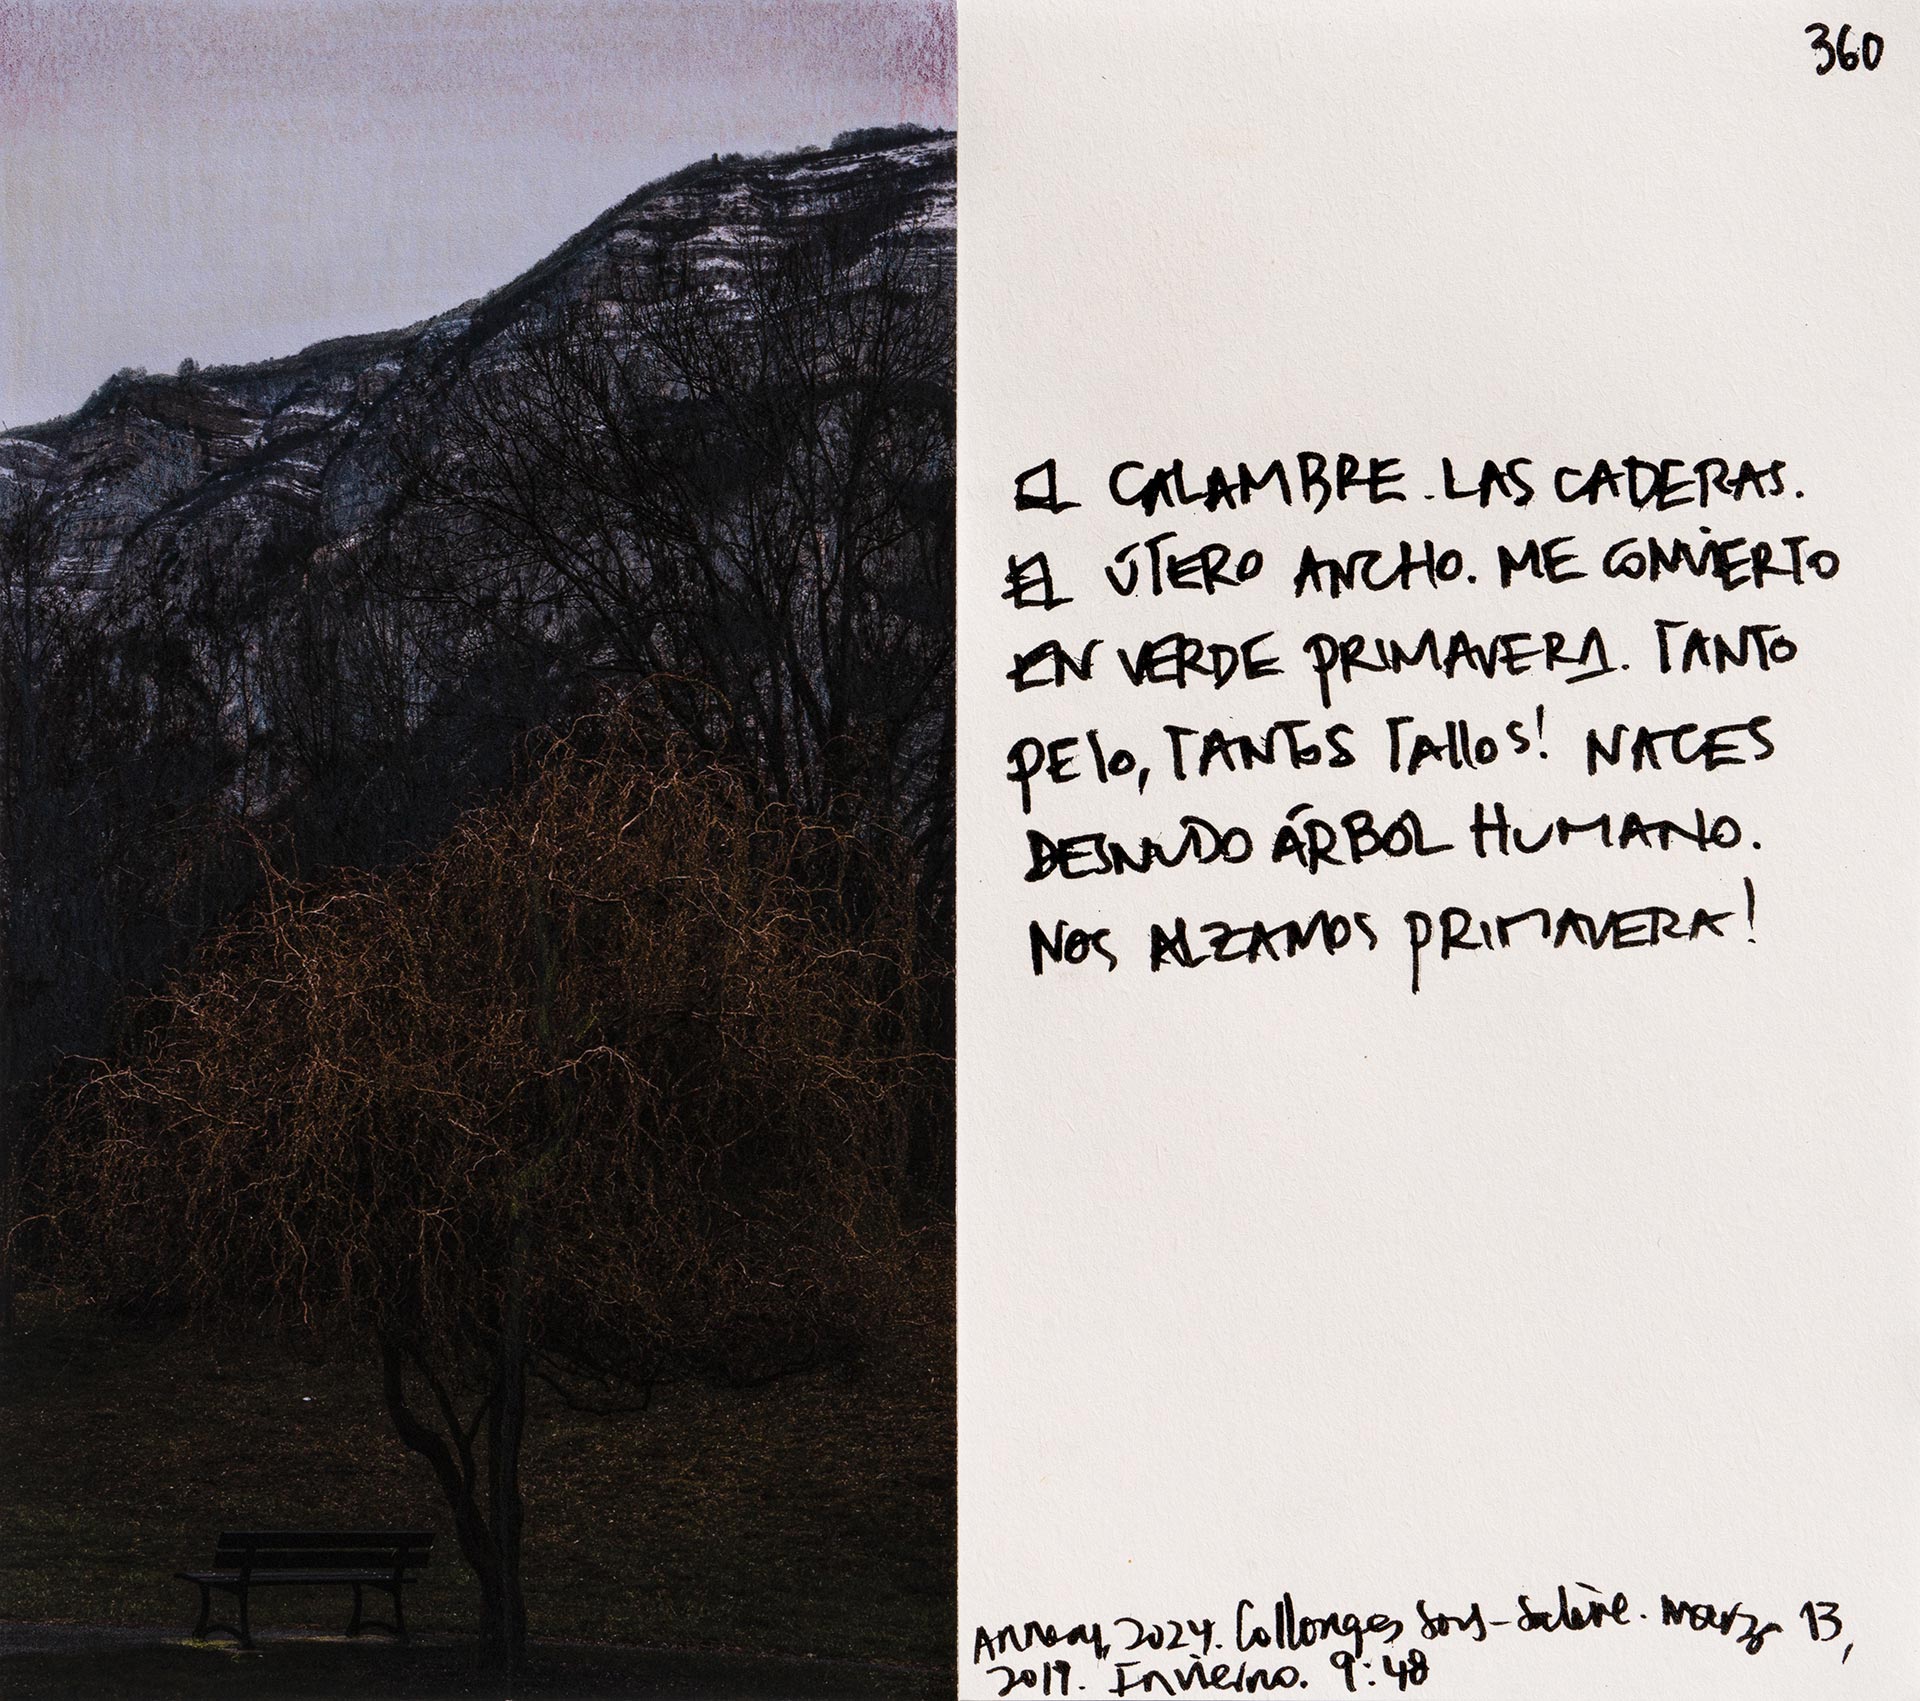 360
EL CALAMBRE. LAS CADERAS.
EL ÚTERO ANCHO. ME CONVIERTO
EN VERDE PRIMAVERA. TANTO
PELO, TANTOS TALLOS! NACES
DESNUDO ÁRBOL HUMANO.
NOS ALZAMOS PRIMAVERA!
Annecy, 2024. Collonges Sous-Salève. Marzo 13,
2019. Invierno. 9:48